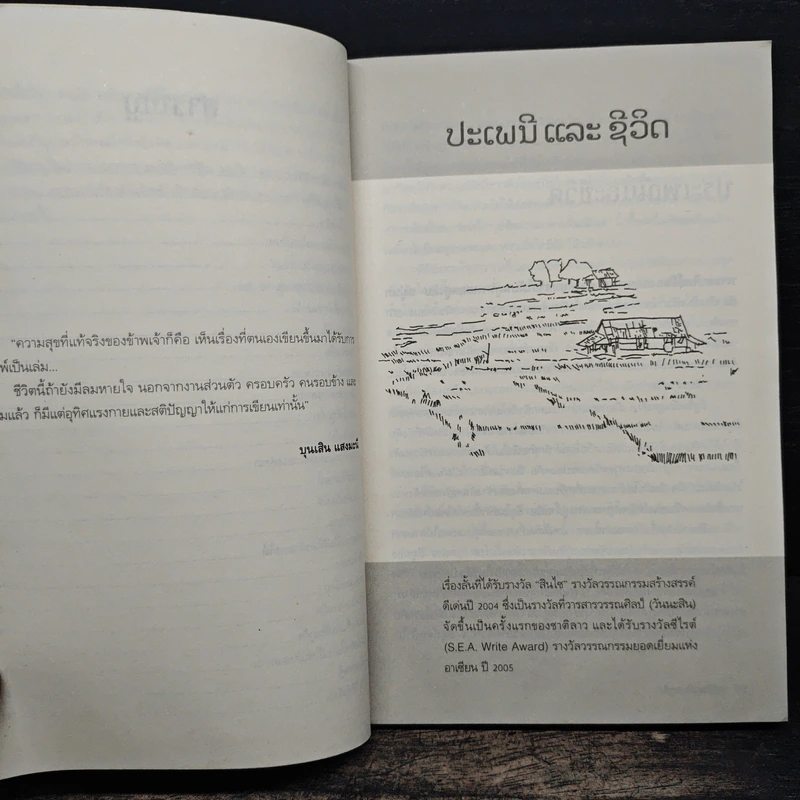 "ความสุขที่แท้จริงของข้าพเจ้าก็คือ เห็นเรื่องที่ตนเองเขียนขึ้นมาได้รับการ
พ์เป็นเล่ม...
ชีวิตนี้ถ้ายังมีลมหายใจ นอกจากงานส่วนตัว ครอบครัว คนรอบข้าง และ
มแล้ว ก็มีแต่อุทิศแรงกายและสติปัญญาให้แก่การเขียนเท่านั้น"
บุนเสิน แสงมะนี
ປະເພນີ ແລະ ຊີວິດ
เรื่องสั้นที่ได้รับรางวัล "สินไซ" รางวัลวรรณกรรมสร้างสรรค์
ดีเด่นปี 2004 ซึ่งเป็นรางวัลที่วารสารวรรณศิลป์ (วันนะสิน)
จัดขึ้นเป็นครั้งแรกของชาติลาว และได้รับรางวัลซีไรต์
(S.E.A. Write Award) รางวัลวรรณกรรมยอดเยี่ยมแห่ง
อาเซียน ปี 2005